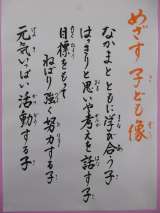 めざす子ども像
なかまとともに学び合う子
はっきりと思いや考えを話す子
目標をもって
ねばり強く努力する子
元気いっぱい活動する子